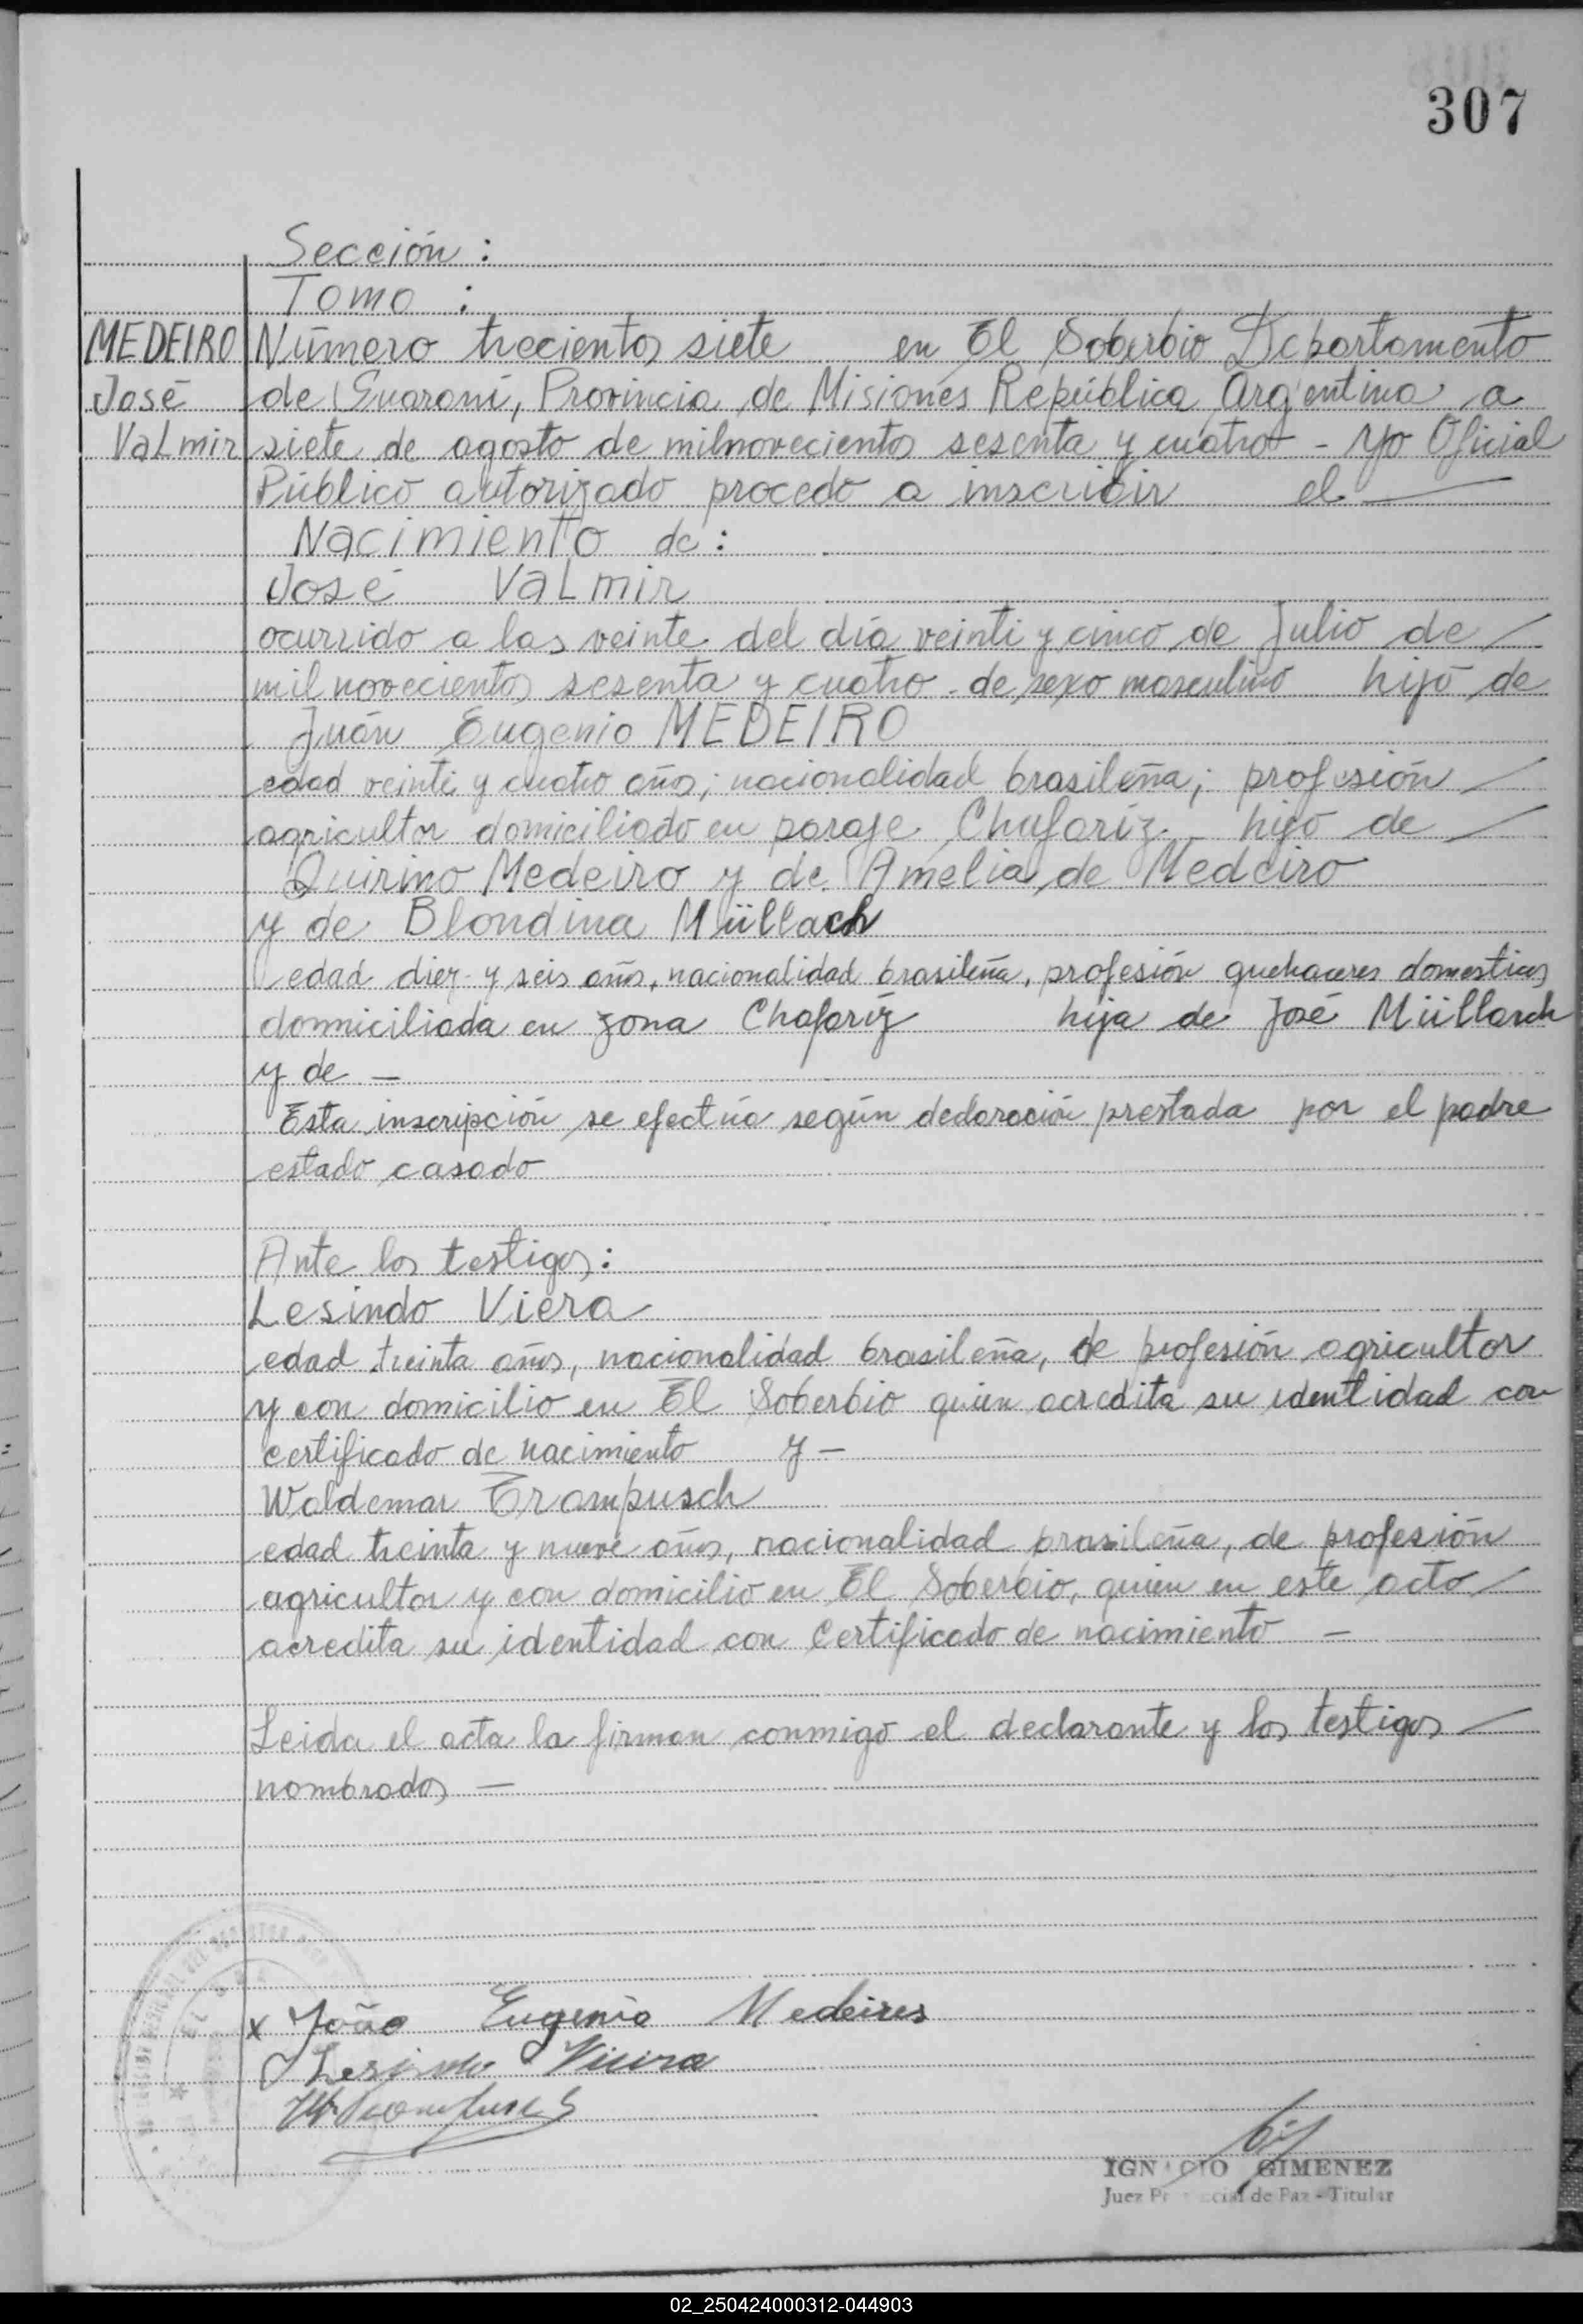 307
Sección :
Tomo :
MEDEIRO Número treciento siete en El Soberbio Departamento
José de Guaraní, Provincia de Misiones República Argentina a
Valmir siete de agosto de milnoveciento sesenta y cuatro - Yo Oficial
Público autorizado procedo a inscribir el
Nacimiento de :
José Valmir
ocurrido a las veinte del día veinti y cinco de Julio de
mil noveciento sesenta y cuatro - de sexo masculino hijo de
Juán Eugenio MEDEIRO
edad veinti y cuatro años; nacionalidad brasileña; profesión
agricultor domiciliado en paraje Chafariz - hijo de
Quirino Medeiro y de Amelia de Medeiro
y de Blondina Müllach
edad diez y seis años, nacionalidad brasileña, profesión quehaceres domesticos
domiciliada en zona Chafariz hija de José Müllasch
y de -
Esta inscripción se efectúa según declaración prestada por el padre
estado casado
Ante los testigos:
Lesindo Viera
edad treinta años, nacionalidad brasileña, de profesión agricultor
y con domicilio en El Soberbio quien acredita su identidad con
certificado de nacimiento y -
Waldemar Trampusch
edad treinta y nueve años, nacionalidad brasileña, de profesión
agricultor y con domicilio en El Soberbio, quien en este acto
acredita su identidad con Certificado de nacimiento -
Leida el acta la firman conmigo el declarante y los testigos
nombrados -
x João Eugenio Medeires
Lesindo Vieira
IGNACIO GIMENEZ
Juez Provincial de Paz - Titular
02_250424000312-044903